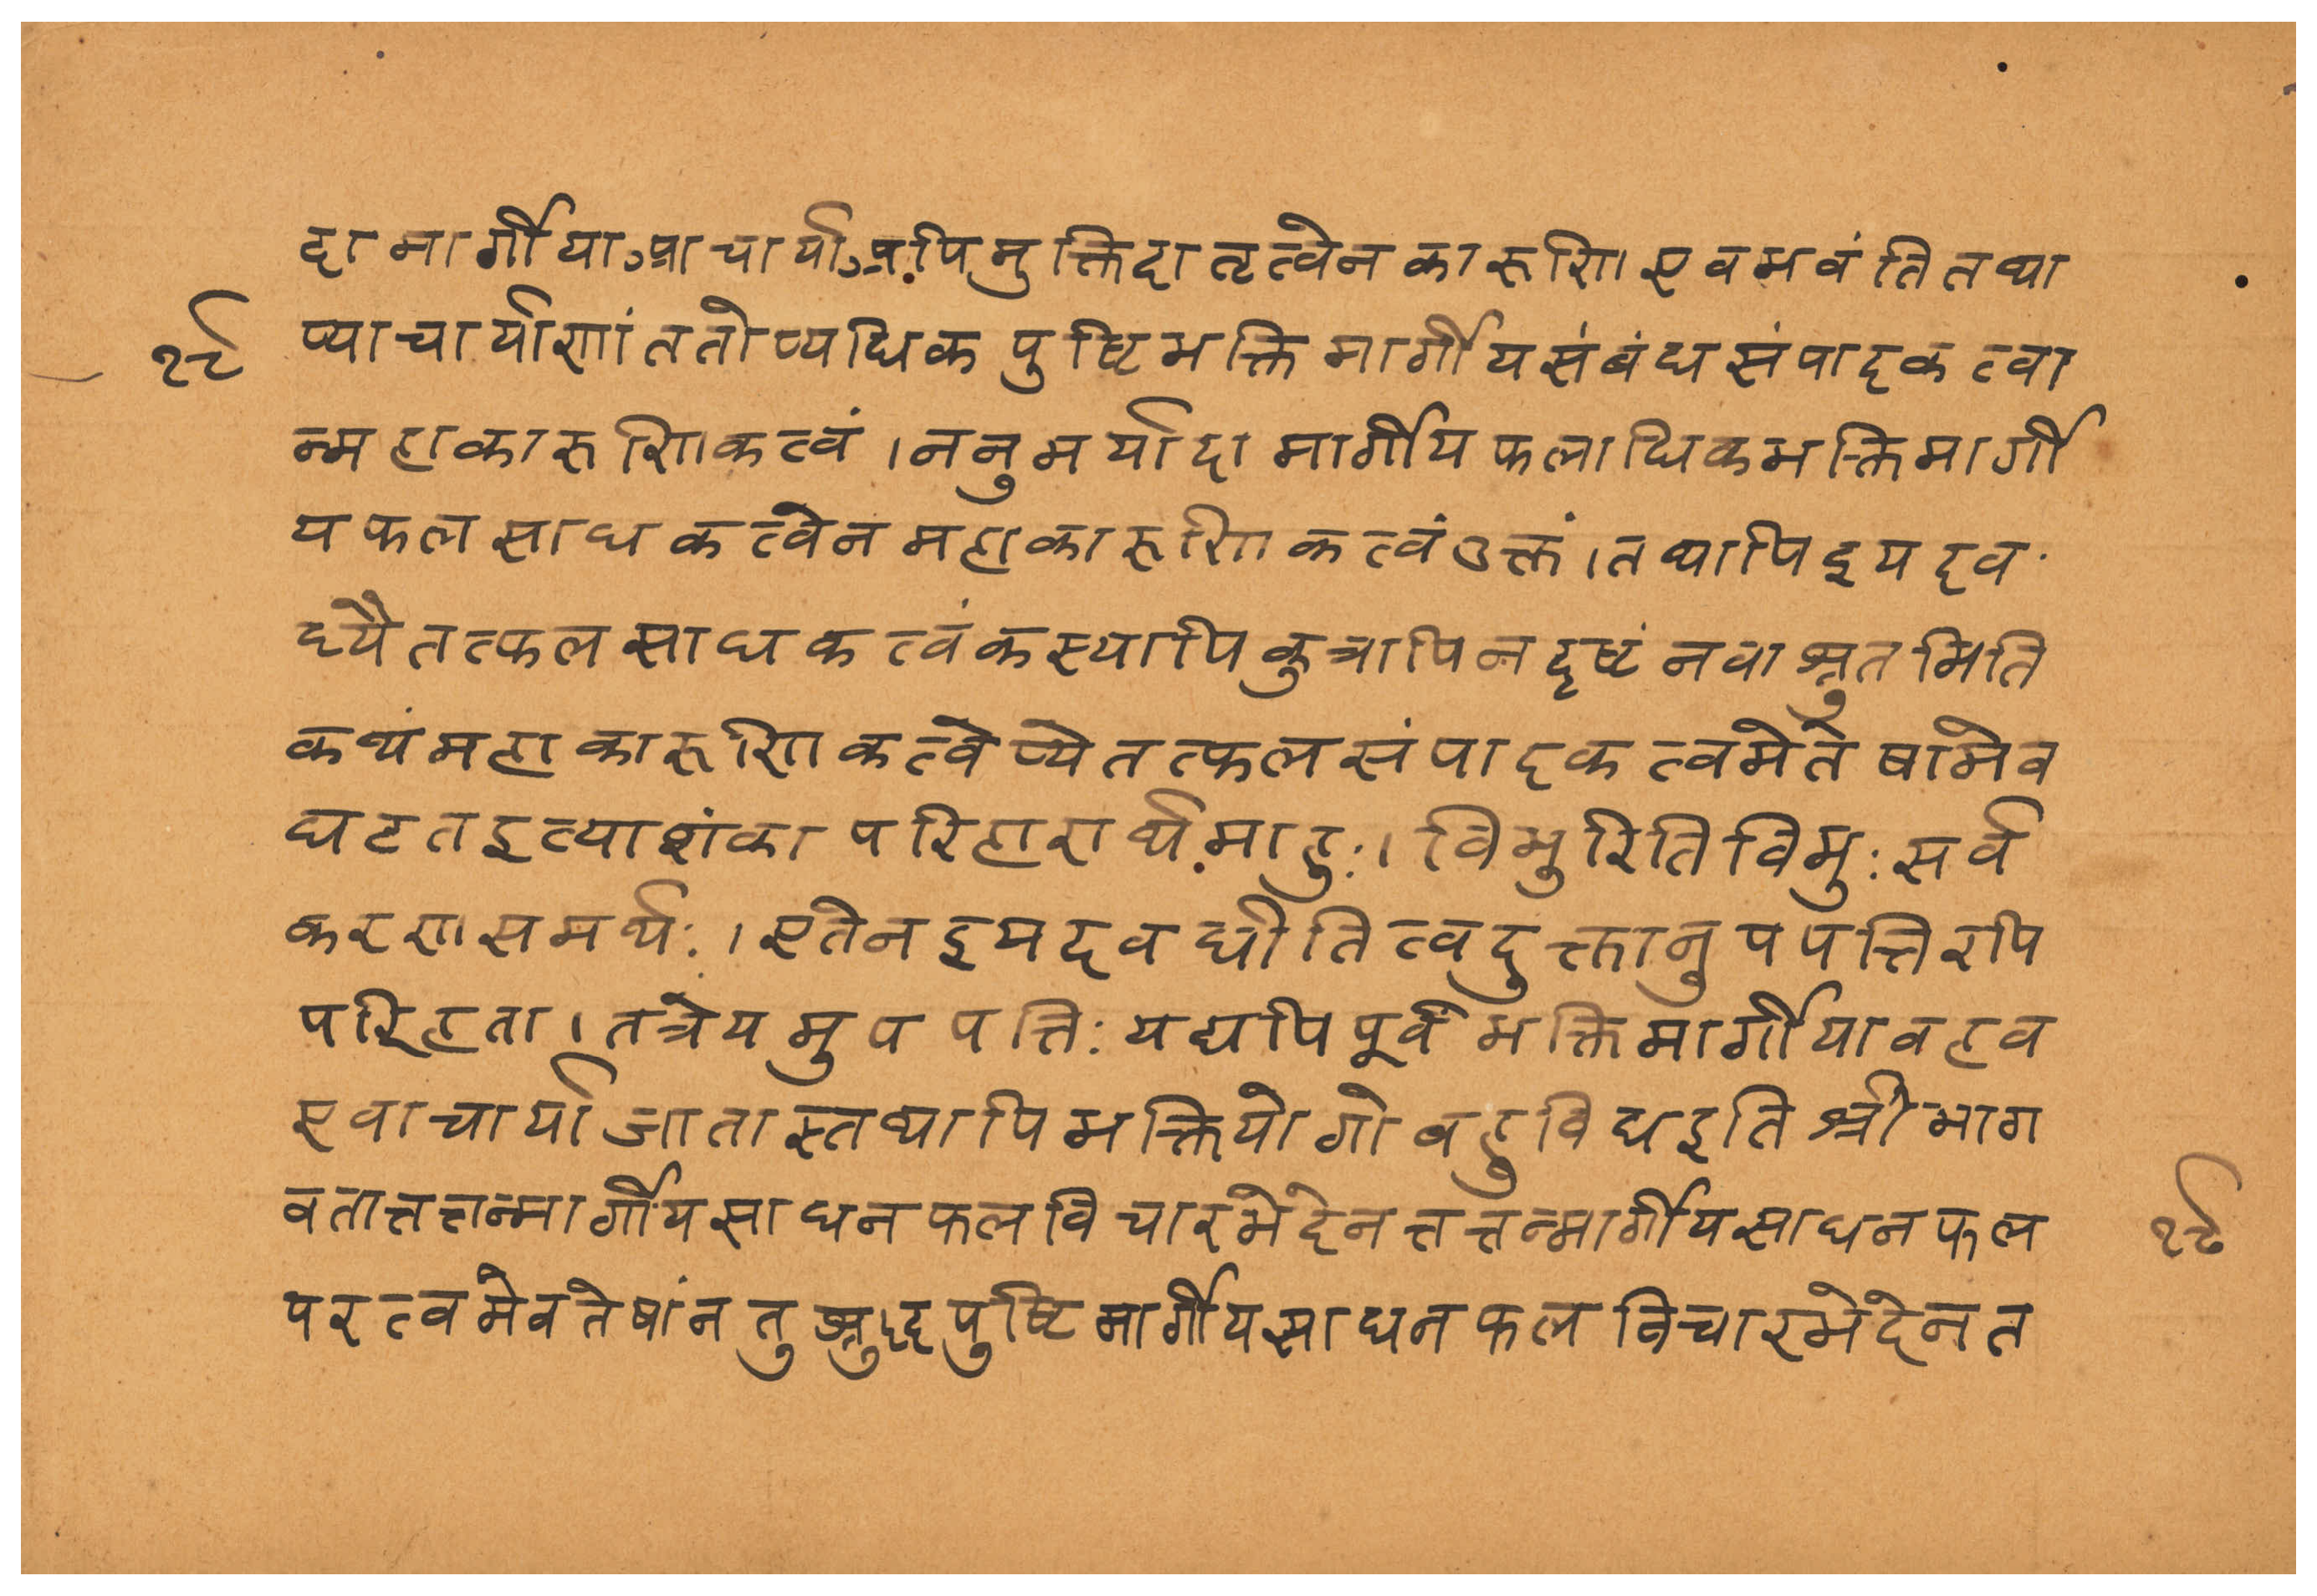 दामार्गीयाआचार्याअपिमुक्तिदातृत्वेनकारुणिएवभवंतितथा
१८ प्याचार्याणांततोप्यधिकपुष्टिभक्तिमार्गीयसंबंधसंपादकत्वा
न्महाकारुणिकत्वं।ननुमर्यादामार्गीयफलाधिकभक्तिमार्गी
यफलसाधकत्वेनमहाकारुणिकत्वंउक्तं।तथापिइयदव
ध्यैतत्फलसाधकत्वंकस्यापिकुत्रापिनदृष्टंनवाश्रुतमिति
कथंमहाकारुणिकत्वेप्येतत्फलसंपादकत्वमेतेषामेव
घटतइत्याशंकापरिहारार्थमाहुः।विभुरितिविभुःसर्व
करणसमर्थः।एतेनइयदवधीतित्वदुक्तानुपपत्तिरपि
परिहृता।तत्रेयमुपपत्तिःयद्यपिपूर्वंभक्तिमार्गीयावहव
एवाचार्याजातास्तथापिभक्तियोगोवहुविधइतिश्रीभाग
वतात्तत्तन्मार्गीयसाधनफलविचारभेदेनत्ततन्मार्गीयसाधनफल १८
परत्वमेवतेषांनतुश्रुद्दपुष्टिमार्गीयसाधनफलविचारभेदेनत